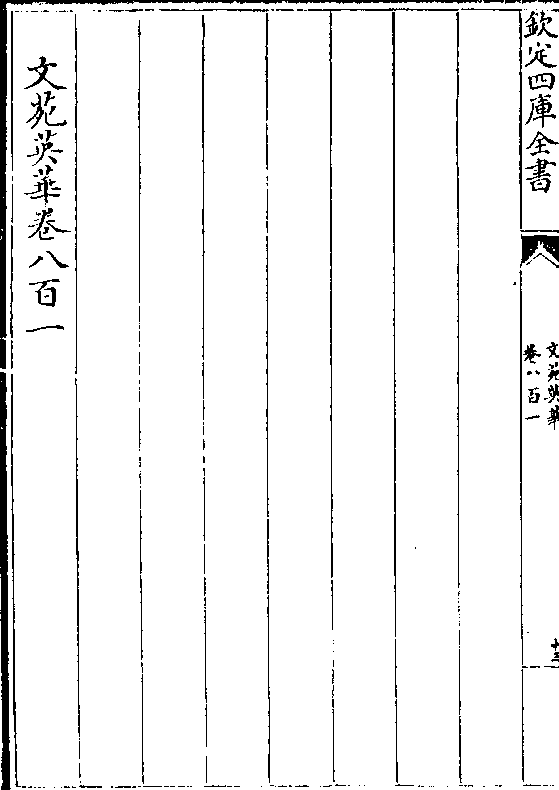 欽定四庫全書
文苑英華
卷八百一
十三
文苑英華卷八百一